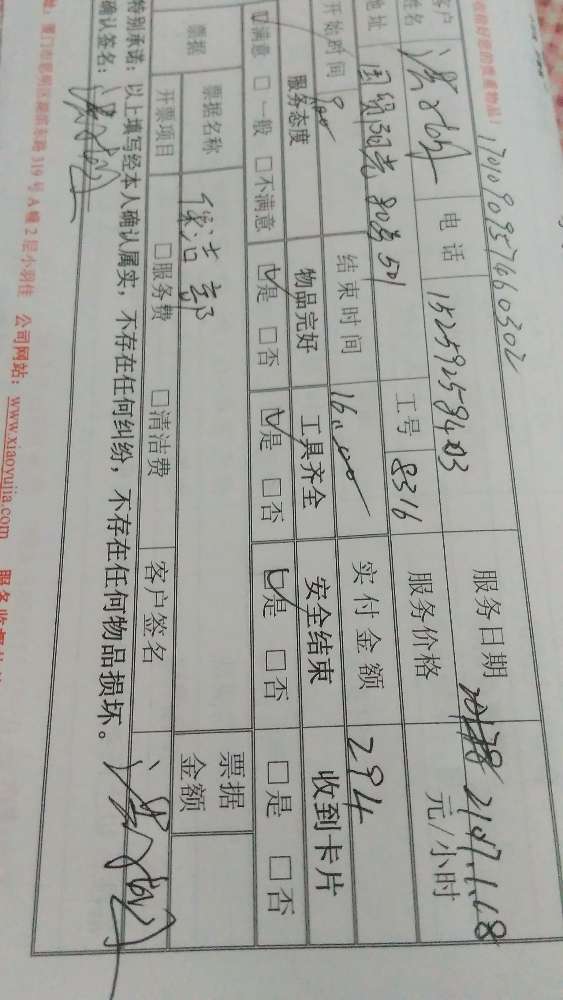 收拾好您的贵重物品!
17010909574660302
客户姓名 电话 15259259403 服务日期 2017.1.18
地址 国贸阳光 501 工号 8316 服务价格 元/小时
开始时间 9:00 结束时间 16:00 实付金额 294
服务态度 物品完好 工具齐全 安全结束 收到卡片
☑满意 □一般 □不满意 ☑是 □否 ☑是 □否 ☑是 □否 □是 □否
票据 票据名称 保洁部 票据金额
开票项目 □服务费 □清洁费 客户签名
特别承诺：以上填写经本人确认属实，不存在任何纠纷，不存在任何物品损坏。
确认签名：
厦门市思明区湖滨东路 319 号 A 幢 2 层小羽佳 公司网站：www.xiaoyujia.com